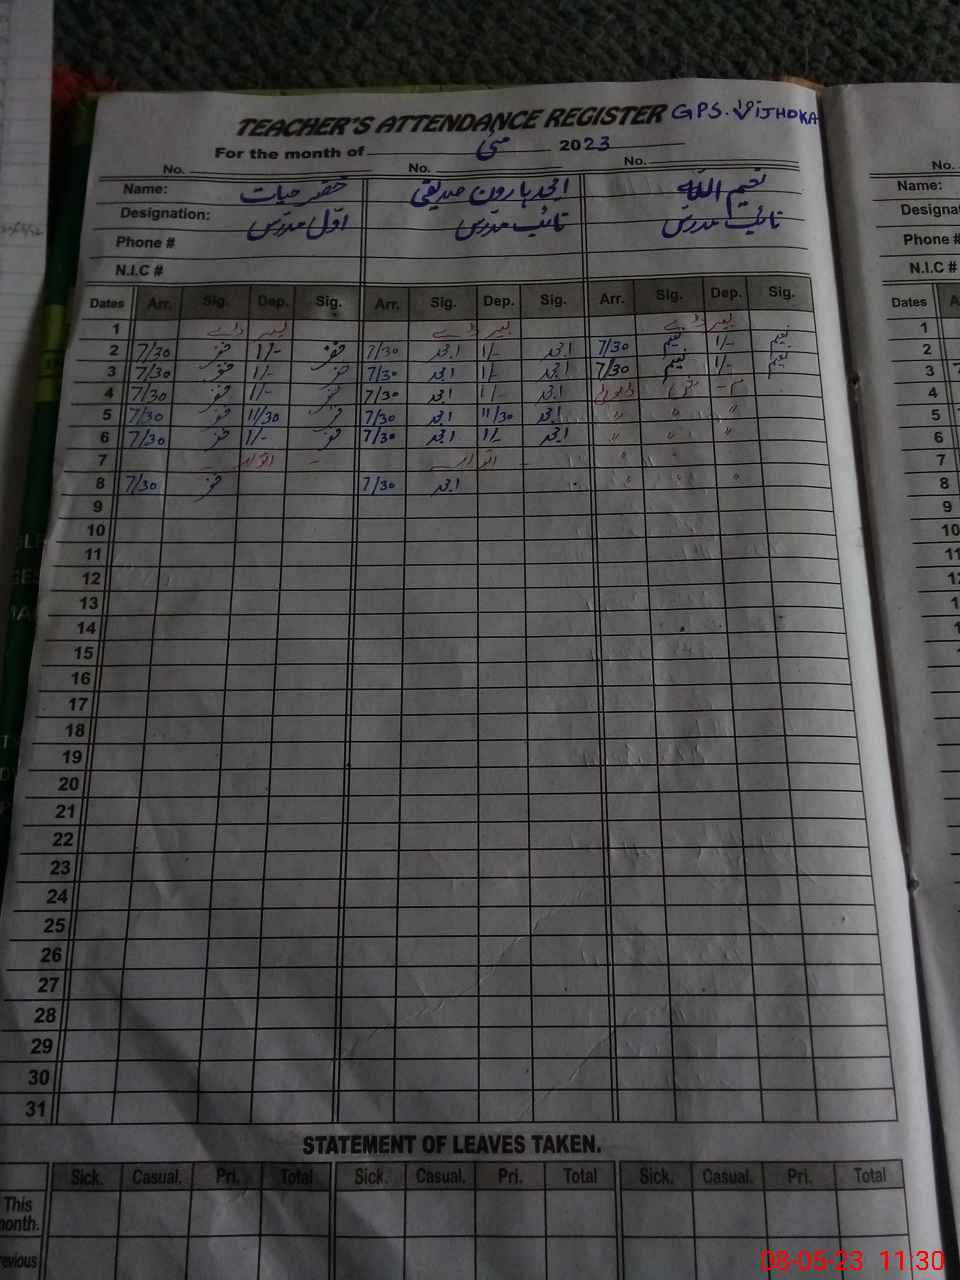 TEACHER'S ATTENDANCE REGISTER GPS. VIJHOKA
For the month of مئی 2023
No. No. No.
Name: خضر حیات امجد ہارون صدیقی نعیم اللہ
Designation: اوّل مدرّس نائب مدرّس نائب مدرّس
Phone #
N.I.C #
Dates Arr. Sig. Dep. Sig. Arr. Sig. Dep. Sig. Arr. Sig. Dep. Sig.
1
2 7/30 خضر 1/- خضر 7/30 امجد 1/- امجد 7/30 نعیم 1/- نعیم
3 7/30 خضر 1/- خضر 7/30 امجد 1/- امجد 7/30 نعیم 1/- نعیم
4 7/30 خضر 1/- خضر 7/30 امجد 1/- امجد
5 7/30 خضر 11/30 خضر 7/30 امجد 11/30 امجد " " " "
6 7/30 خضر 1/- خضر 7/30 امجد 1/- امجد " " "
7 اتوار اتوار " " "
8 7/30 خضر 7/30 امجد " " "
9
10
11
12
13
14
15
16
17
18
19
20
21
22
23
24
25
26
27
28
29
30
31
STATEMENT OF LEAVES TAKEN.
Sick. Casual. Pri. Total Sick. Casual. Pri. Total Sick. Casual. Pri. Total
This
month.
revious
No.
Name:
Designa
Phone #
N.I.C #
Dates
1
2
3
4
5
6
7
8
9
10
11
12
08-05-23 11:30